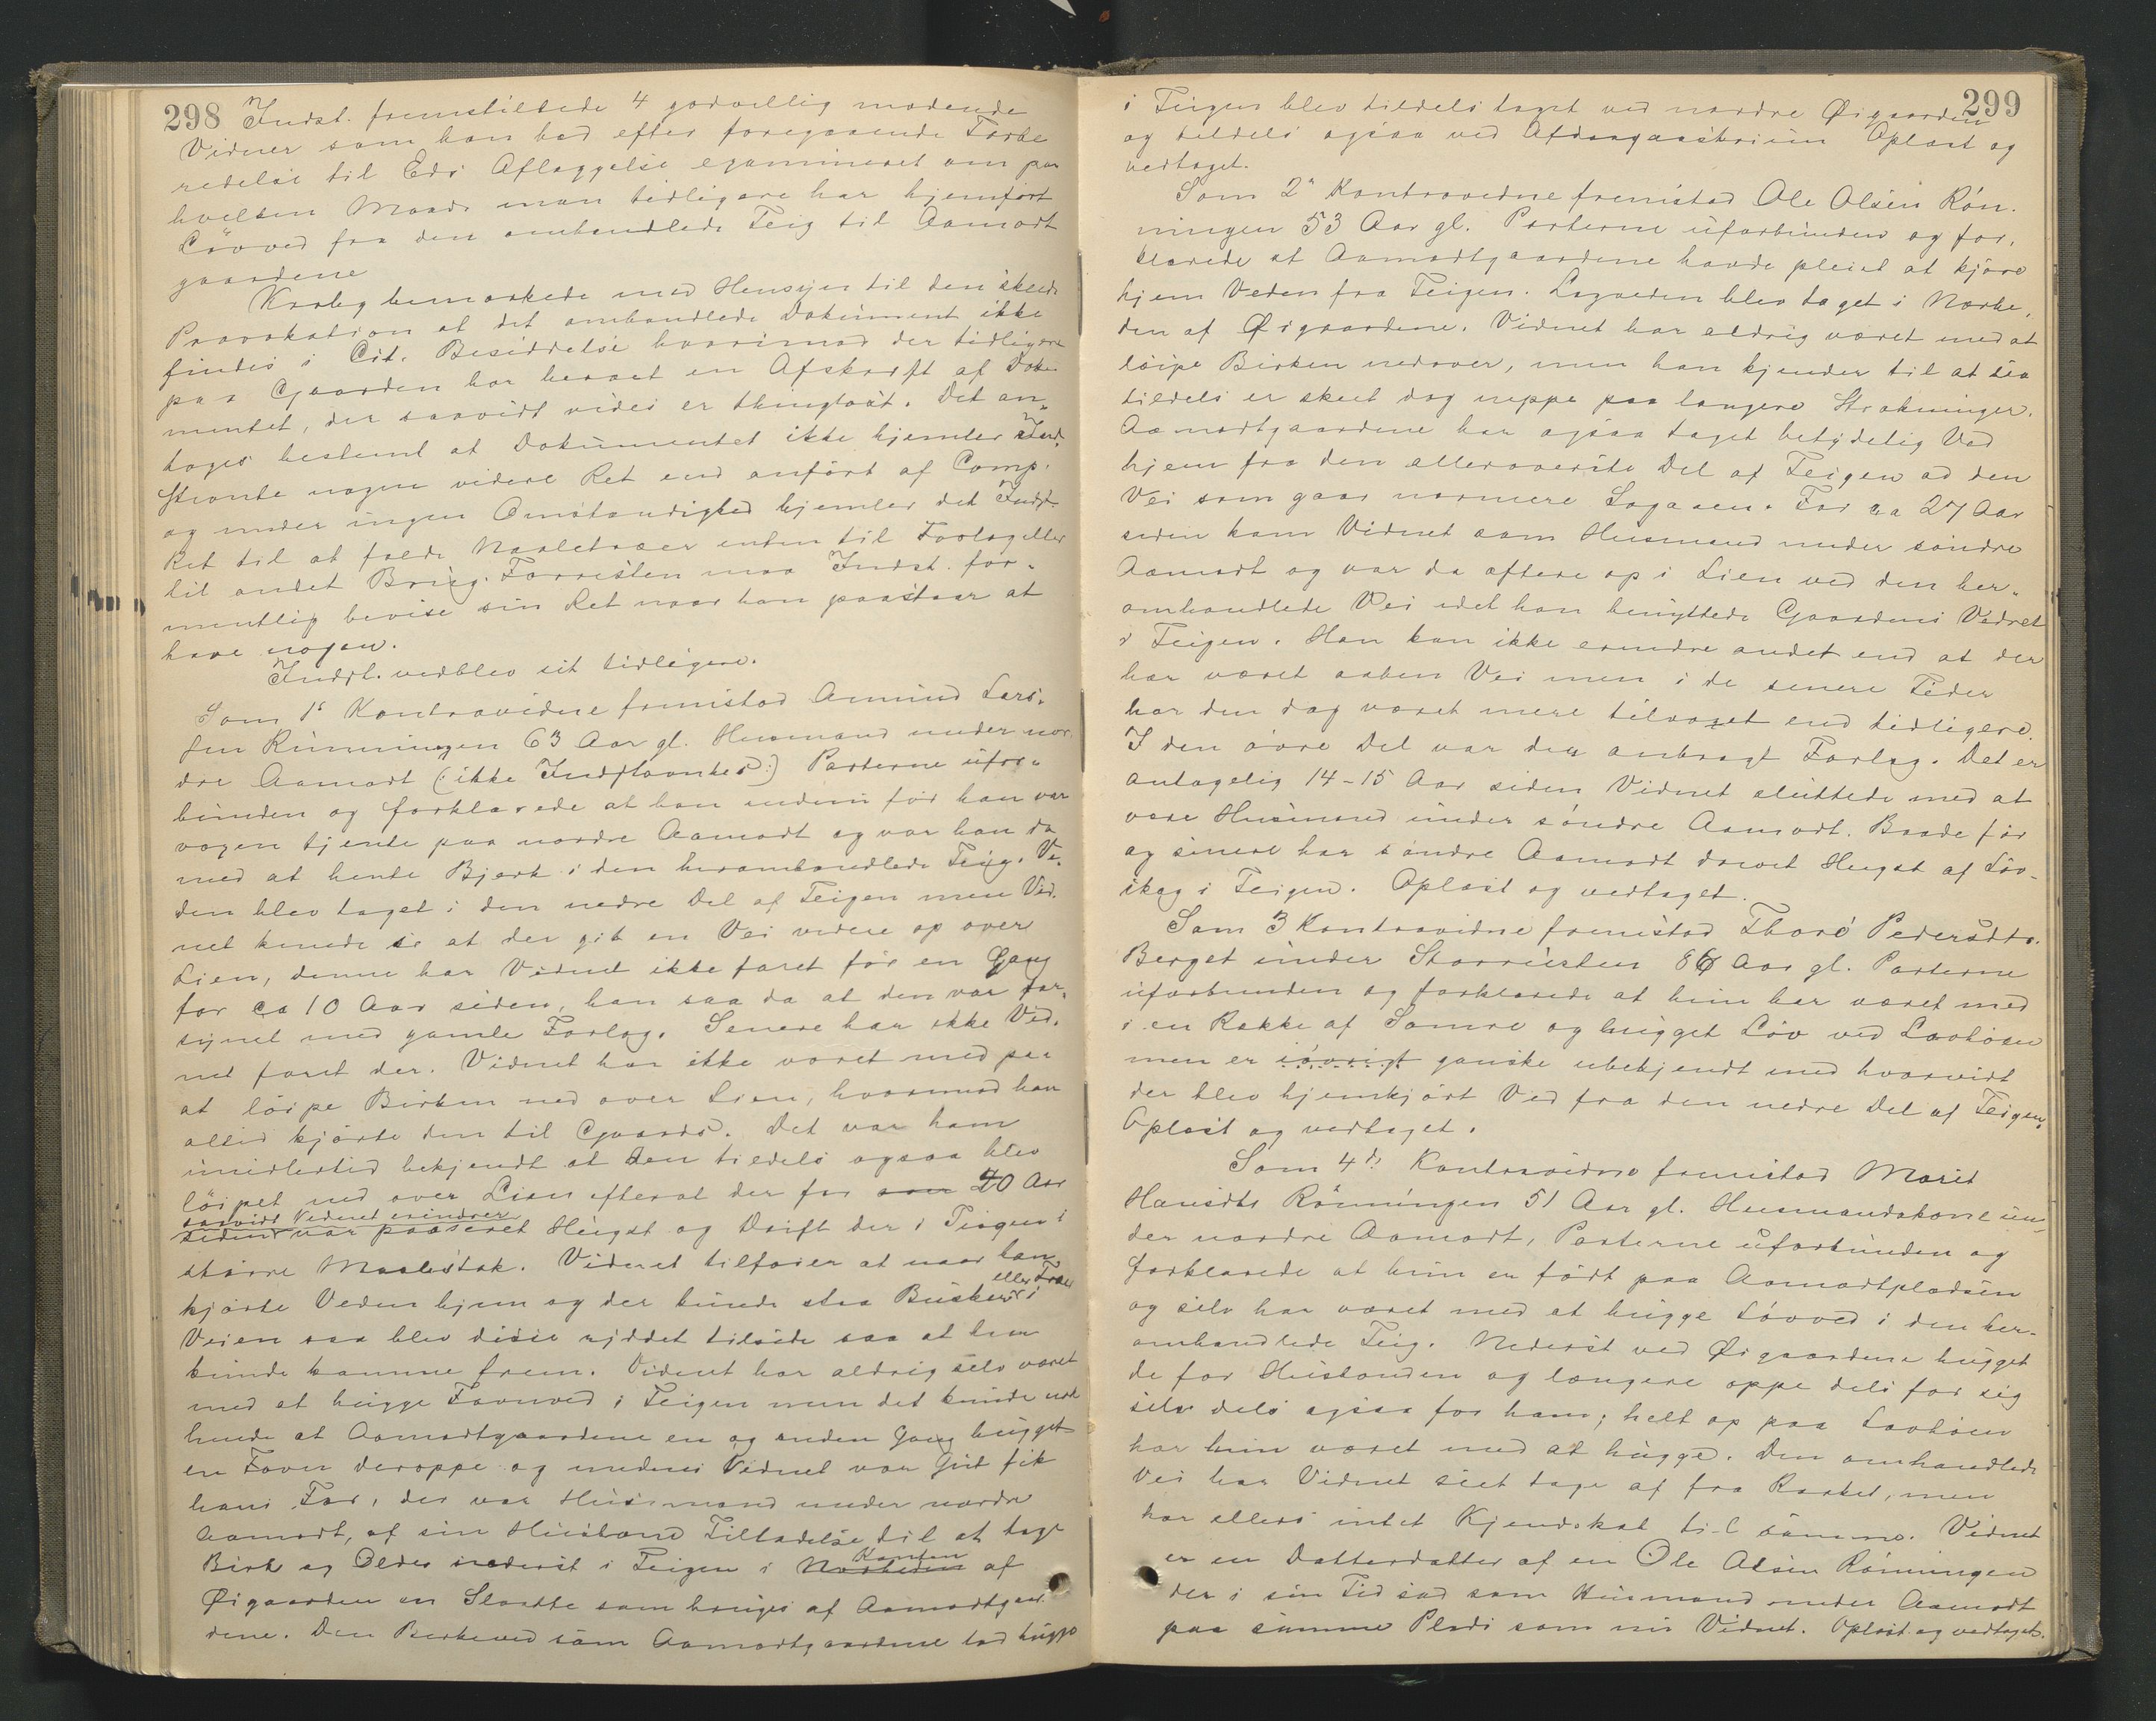 298 Indst. fremstillede 4 godvillig mødende
Vidner som han bad efter foregaaende Forbe
redelse til Eds Aflæggelse examineret om paa
hvilken Maade man tidligere har hjemført
Løvved fra den omhandlede Teig til Aamodt
gaardene
Krabg bemærkede med Hensyn til den skede
Provokation at det omhandlede Dokument ikke
findes i Cit. Besiddelse hvorimod der tidligere
paa Gaarden har beroet en Afskrift af Doku
mentet, der saavidt vides er thinglæst. Det an-
toges bestemt at Dokumentet ikke hjemler Ind
stevnte nogen videre Ret end anført af Comp.
og under ingen Omstændighed hjemler det Indst.
Ret til at felde Naaletræer enten til Forlog eller
til andet Brug. Forresten maa Indst. for-
mentlig bevise sin Ret naar han paastaar at
have nogen.
Indst. vedblev sit tidligere.
Som 1s Kontravidne fremstod Amund Lars-
sen Rønningen 63 Aar gl. Husmand under nor
dre Aamodt (: ikke Indstevntes :) Parterne ufor-
bunden og forklarede at han endnu før han var
voxen tjente paa nordre Aamodt og var han da
med at hente Bjerk i den heromhandlede Teig. Ve-
den blev taget i den nedre Del af Teigen men Vid-
net kunde se at der gik en Vei videre op over
Lien, denne har Vidnet ikke faret før en Gang
for ca 10 Aar siden, han saa da at den var for-
synet med gamle Forlog. Senere har ikke Vid-
net faret der. Vidnet har ikke været med paa
at løipe Birken ned over Lien, hvorimod han
altid kjørte den til Gaards. Det var ham
imidlertid bekjendt at den tildels ogsaa blev
løipet ned over Lien efterat der for 20 Aar
saavidt Vidnet erindrer
siden var passeret Hugst og Drift der i Teigen i
større Maalestok. Vidnet tilføier at naar han
eller Træer
kjørte Veden hjem og der kunde staa Buske i
Veien saa blev disse ryddet tilside saa at han
kunde komme frem. Vidnet har aldrig selv været
med at hugge Favnved i Teigen men det kunde nok
hende at Aamodtgaardene en og anden Gang hugget
en Favn deroppe og medens Vidnet var Gut fik
hans Far, der var Husmand under nordre
Aamodt, af sin Husbond Tilladelse til at tage
Kanten
Birk og Older nederst i Teigen i Nærheden af
Øigaarden en Slaatte som bruges af Aamodtgaar
dene. Den Birkeved som Aamodtgaardene lod hugge
299
i Teigen blev tildels taget ved nordre Øigaarden
og tildels ogsaa ved Oplæst og
vedtaget.
Som 2n Kontravidne fremstod Ole Olsen Røn-
ningen 53 Aar gl. Parterne uforbunden og for-
klarede at Aamodtgaardene havde pleiet at kjøre
hjem Veden fra Teigen. Lagveden blev taget i Nærhe-
den af Øigaardene. Vidnet har aldrig været med at
løipe Birken nedover, men han kjender til at saa
tildels er skeet dog neppe paa længere Strækninger.
Aamodtgaardene har ogsaa taget betydelig Ved
hjem fra den alleroverste Del af Teigen ad den
Vei som gaar nærmere Sagaaen. For ca 27 Aar
siden kom Vidnet som Husmand under søndre
Aamodt og var da oftere op i Lien ved den her-
omhandlede Vei idet han benyttede Gaardens Vedret
i Teigen. Han kan ikke erindre andet end at der
har været aaben Vei men i de senere Tider
har den dog været mere tilvoxet end tidligere.
I den øvre Del var der anbragt Forlog. Det er
antagelig 14-15 Aar siden Vidnet sluttede med at
være Husmand under søndre Aamodt. Baade før
og senere har søndre Aamodt drevet Hugst af Løv-
skog i Teigen. Oplæst og vedtaget.
Som 3 Kontravidne fremstod Thore Pedersdtr.
Berget under Storrusten 86 Aar gl. Parterne
uforbunden og forklarede at hun har været med
i en Række af Somre og hugget Løv ved Lavhøen
men er iøvrigt ganske ubekjendt med hvorvidt
der blev hjemkjørt Ved fra den nedre Del af Teigen.
Oplæst og vedtaget.
Som 4de Kontravidne fremstod Marit
Hansdtr Rønningen 51 Aar gl. Husmandskone un-
der nordre Aamodt, Parterne uforbunden og
forklarede at hun er født paa Aamodtpladsen
og selv har været med at hugge Løvved i den her-
omhandlede Teig. Nederst ved Øigaardene hugget
de for Husbonden og længere oppe dels for sig
selv dels ogsaa for ham; helt op paa Lavhøen
har hun været med at hugge. Den omhandlede
Vei har Vidnet seet tage af fra Raaket, men
har ellers intet Kjendskab til samme. Vidnet
er en Datterdatter af en Ole Olsen Rønningen
der i sin Tid sad som Husmand under Aamodt
paa samme Plads som nu Vidnet. Oplæst og vedtaget.